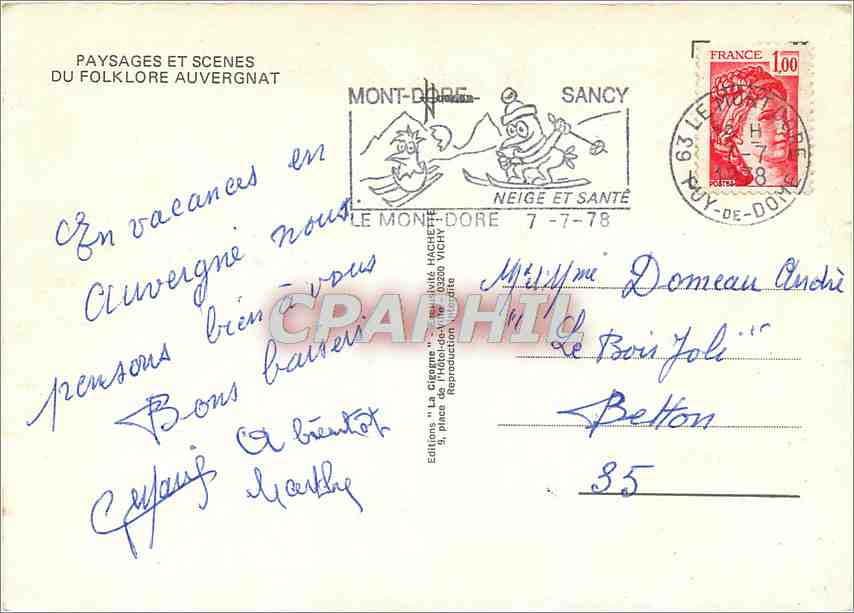 PAYSAGES ET SCENES
DU FOLKLORE AUVERGNAT
MONT-DORE SANCY
NEIGE ET SANTÉ
LE MONT-DORE 7 -7-78
FRANCE 1,00
POSTES
63 LE MONT-DORE
7-7
1978
PUY-DE-DOME
En vacances en
Auvergne nous
pensons bien à vous
Bons baisers
A bientôt
Marthe
Editions "La Cigogne" - Exclusivité HACHETTE
9, place de l'Hôtel-de-Ville - 03200 VICHY
Reproduction interdite
Mr & Mme Domeau André
"Le Bois Joli"
Betton
35
CPAPHIL